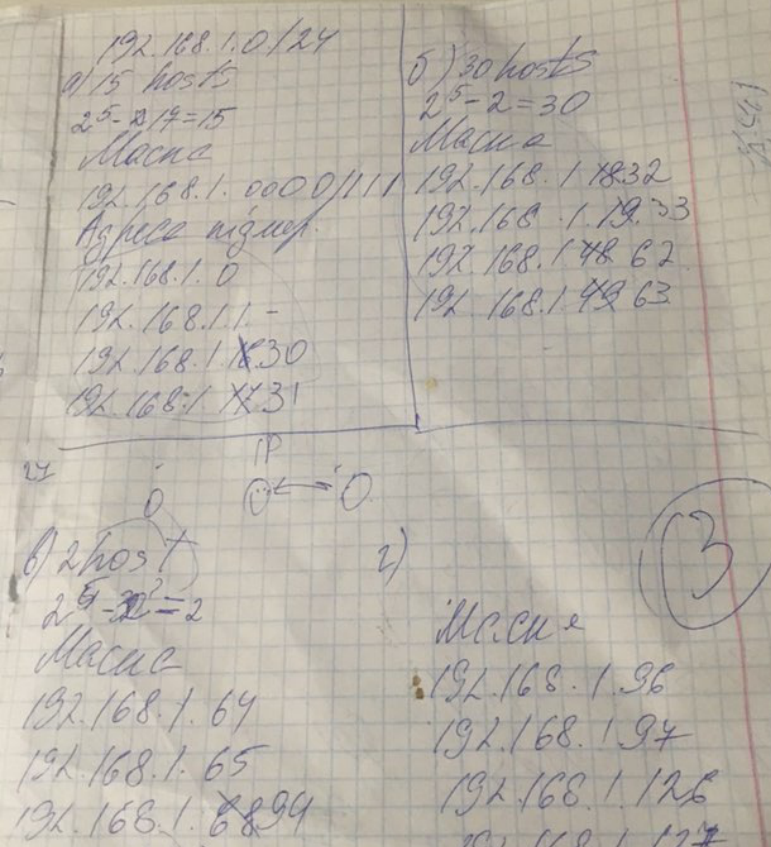 192.168.1.0/24
а) 15 hosts
2⁵-17=15
Маска
192.168.1.00001111
Адреса підмер.
192.168.1.0
192.168.1.1 -
192.168.1.30
192.168.1.31
б) 30 hosts
2⁵-2=30
Маска
192.168.1.32
192.168.1.33
192.168.1.62
192.168.1.63
IP
в) 2 host
=2
Маска
192.168.1.64
192.168.1.65
192.168.1.94
г)
Маска
192.168.1.96
192.168.1.97
192.168.1.126
192.168.1.127
3